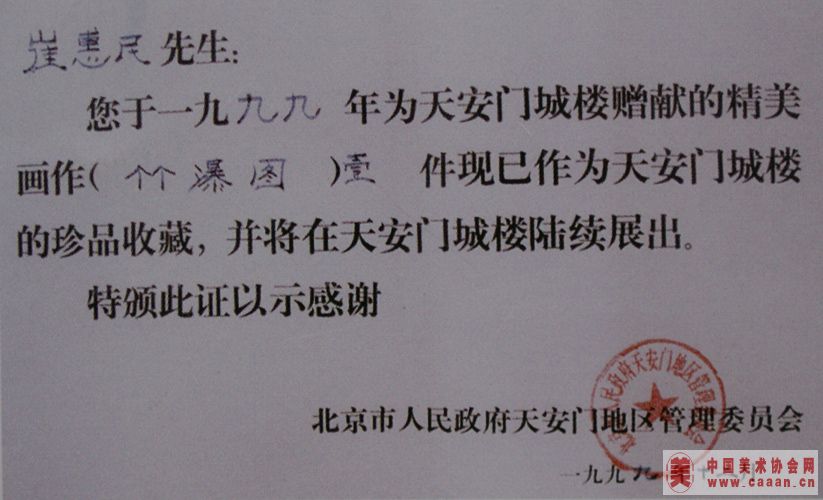 崔惠民先生:
您于一九九九年为天安门城楼赠献的精美
画作(竹瀑图)壹件现已作为天安门城楼
的珍品收藏,并将在天安门城楼陆续展出。
特颁此证以示感谢
北京市人民政府天安门地区管理委员会
北京市人民政府天安门地区管理委员会
一九九九
美 中国美术协会网
www.caaan.cn